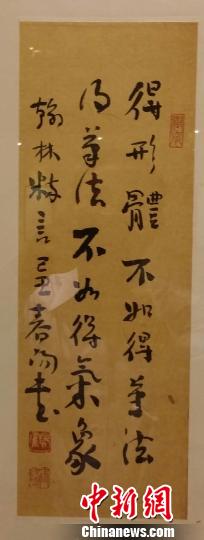 得形體不如得筆法
得筆法不如得氣象
翰林粹言己丑春陽書
中新网
Chinanews.com